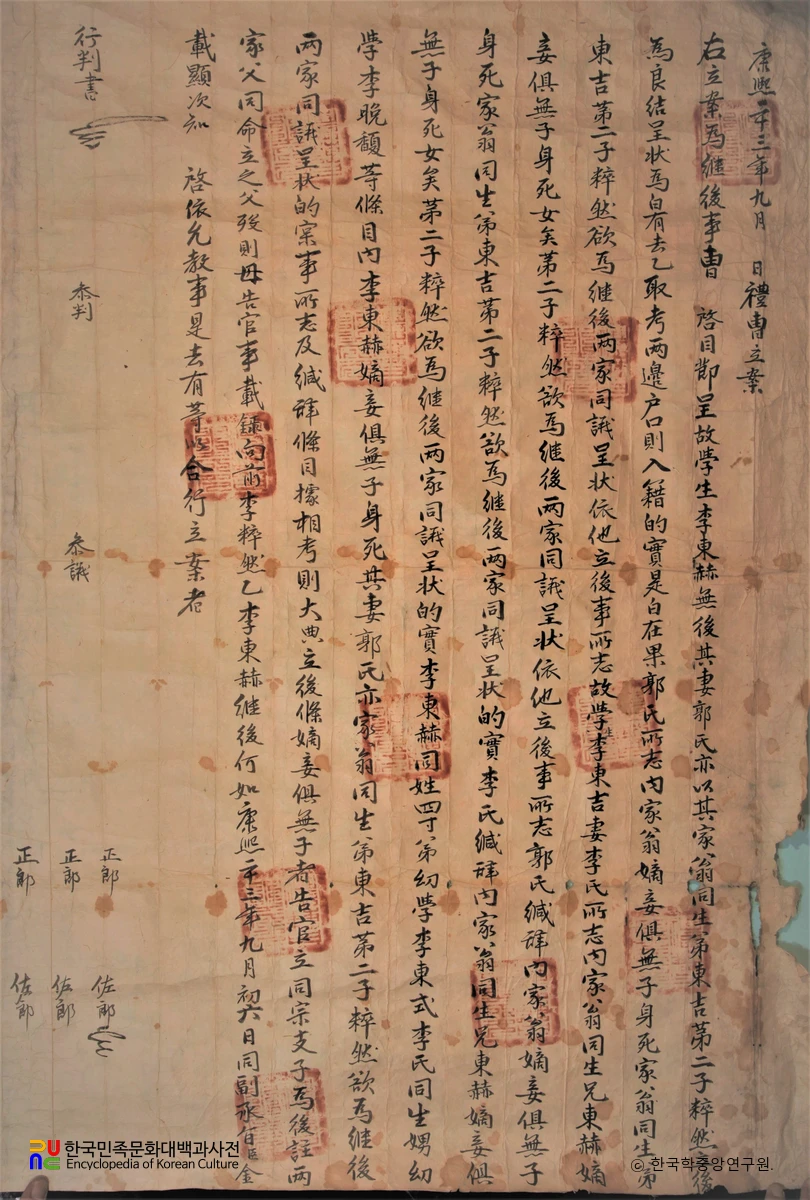 康熙二十三年九月 日禮曹立案
右立案爲継後事曹 啓目節呈故學生李東赫無後其妻郭氏亦以其家翁同生弟東吉第二子粹然立後
爲良結呈状爲白有去乙取考両邊户口則入籍的實是白在果郭氏所志内家翁嫡妾俱無子身死家翁同生弟
東吉第二子粹然欲爲継後両家同議呈状依他立後事所志故學生李東吉妻李氏所志内家翁同生兄東赫嫡
妾俱無子身死女矣第二子粹然欲爲継後両家同議呈状依他立後事所志郭氏緘辞内家翁嫡妾俱無子
身死家翁同生弟東吉第二子粹然欲爲継後両家同議呈状的實李氏緘辞内家翁同生兄東赫嫡妾俱
無子身死女矣第二子粹然欲爲継後両家同議呈状的實李東赫同姓四寸弟幼學李東式李氏同生娚幼
學李晩馥等條目内李東赫嫡妾俱無子身死其妻郭氏亦家翁同生弟東吉第二子粹然欲爲継後
両家同議呈状的實事所志及緘辞條目據相考則大典立後條嫡妾俱無子者告官立同宗支子爲後註両
家父同命立之父殁則母告官事載録向前李粹然乙李東赫継後何如康熙二十三年九月初六日同副承旨臣金
載顯次知 啓依允教事是去有等以合行立案者
行判書 參判 參議 正郎 佐郎
正郎 佐郎
正郎 佐郎
한국민족문화대백과사전
Encyclopedia of Korean Culture
© 한국학중앙연구원.